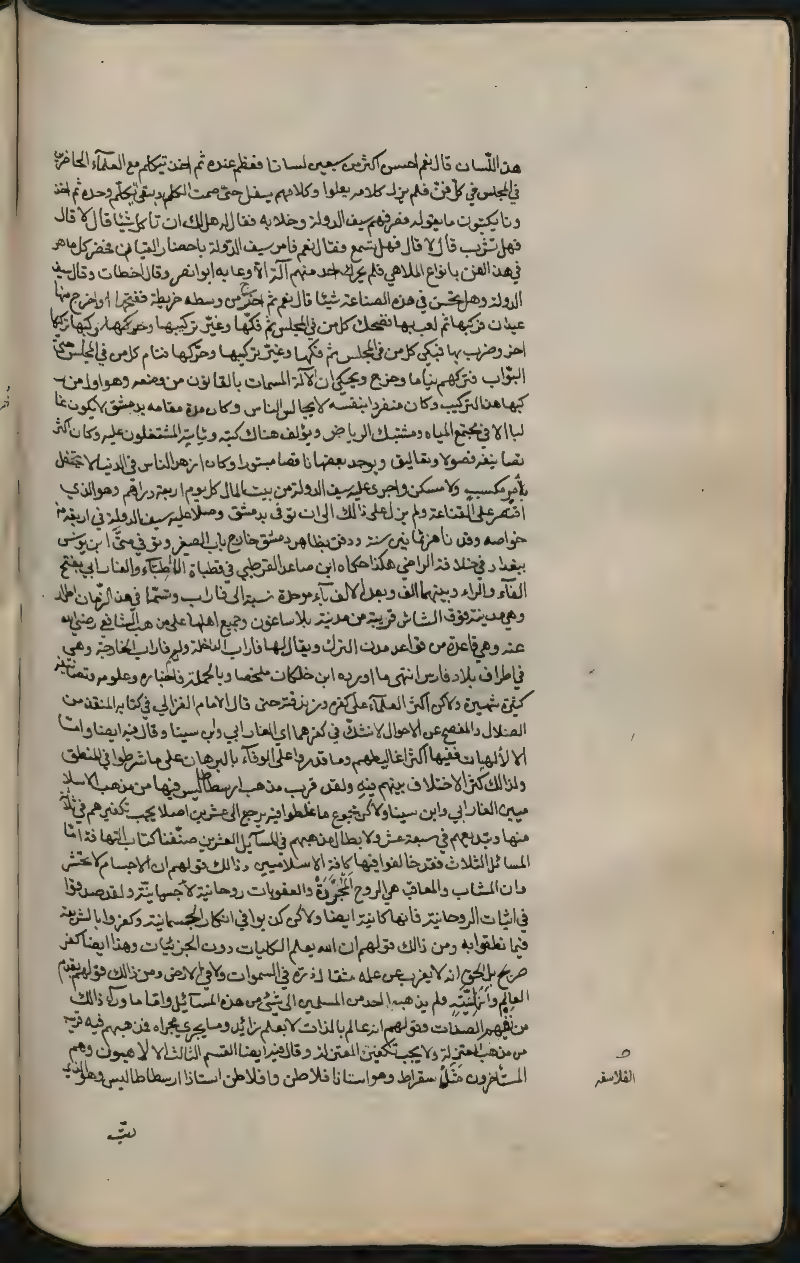 هذا اللسان قال نعم احسن اكثر من سبعين لسانا فعظم عنده ثم اخذ يتكلم مع العلمآء الحاضرين
في المجلس في كل فن فلم يزل كلامه يعلوا وكلامهم يسفل حتى صمت الكل وبقي يتكلم وحده ثم اخذ
وا يكتبون ما يقوله فصرفهم سيف الدولة وخلا به فقال له هل لك ان تاكل شيئا قال لا قال
فهل تشرب قال لا قال فهل تسمع وفقال نعم فامر سيف الدولة باحضار القيان فحضر كل ماهر
في هذا الفن بانواع الملاهي فلم يحرك احد منهم آلة الا وعابه ابوا نصر وقال اخطات وقال سيف
الدولة وهل تحسن في هذه الصناعة شيئا قال نعم ثم اخرج من وسطه خريطة ففتحها واخرج منها
عيدان فركبها ثم لعب بها فضحك كل من في المجلس ثم فكها وغير تركيبها وحركها وركبها تركيبا
اخر وضرب بها فبكى كل من في المجلس ثم فكها وغير تركيبها وحركها فنام كل من في المجلس حتى
البواب فتركهم نياما وخرج ويحكى ان الآلة المسمات بالقانون من وضعه وهو اول من ر
كبها هذا التركيب وكان منفردا بنفسه لا يجالس الناس وكان مدة مقامه بدمشق لا يكون غا
لبا الا في مجتمع المياه ومشتبك الرياض ويؤلف هناك كتبه وياتيه المشتغلون عليه وكان اكثر
تصانيفه فصولا وتعاليق ويوجد بعضها ناقصا مبتورا وكان ازهد الناس في الدنيا لا يحتفل
بامر مكسب ولا مسكن واجرى عليه سيف الدولة من بيت المال كل يوم اربعة دراهم وهو الذي
اقتصر على القناعة ولم يزل على ذالك الى ان توفي بدمشق وصلا عليه سيف الدولة في اربعة من
خواصه وقد ناهز ثمانين سنة ودفن بظاهر دمشق خارج باب الصغير وتوفي متى ابن يونس
ببغداد في خلافة الراضي هكذا حكاه ابن صاعد القرطبي في طبقاة الاطباء والفارابي بفتح
الفآء والراء وبينهما الف وبعد الالف بآء موحدة نسبة الى فاراب وتسمى في هذا الزمان اطرار
وهي مدينة فوق الشاش قريبة من مدينة بلاساغون وجميع اهلها على مذهب الشافعي رضي الله
عنه وهي قاعدة من قواعد مدن الترك ويقال لها فاراب الداخلة ولهم فاراب الخارجة وهي
في اطراف بلاد فارس انتهى ما اورده ابن خلكان ملخصا وبالجملة فاخباره وعلومه وتصانيفه
كثيرة شهيرة ولاكن اكثر العلمآء على كفره وزندقته حتى قال الامام الغزالي في كتابه المنقذ من
الضلال والمفصح عن الاحوال لا نشك في كفرهما اي الفارابي وابن سينا وقال فيه ايضا واما
الالاهيات ففيها اكثر اغاليطهم وما قدروا على الوفآء بالبرهان على ما شرطوا في المنطق
ولذالك كثر الاختلاف بينهم فيه ولقد قرب مذهب ارسطاطاليس فيها من مذهب الاسلا
ميين الفارابي وابن سينا ولاكن مجموع ما غلطوا فيه يرجع الى عشرين اصلا يجب تكفيرهم في ثلاثة
منها وتبديعهم في سبعة عشر ولابطال مذهبهم في المسآئل العشرين صنفنا كتاب التهافة اما
المسائل الثلاث فقد خالفوا فيها كافة الاسلاميين وذالك قولهم ان الاجسام لا تحشر
وان المثاب والمعاقب هي الروح المجردة والعقوبات روحانية لا جسمانية ولقد صدقوا
في اثبات الروحانية فانها كانية ايضا ولاكن كذبوا في انكار الجسمانية وكفروا بالشريعة
فيما نطقوا به ومن ذالك قولهم ان الله يعلم الكليات دون الجزئيات وهذا ايضا كفر
صريح بل الحق انه لا يعزب عن علمه مثقال ذرة في السموات ولا في الارض ومن ذالك قولهم بقدم
العالم وازليته فلم يذهب احد من المسلمين الى شيئ من هذه المسآئل واما ما ورآء ذالك
من نفيهم الصفات وقولهم انه عالم بالذات لا بعلم زائد وما يجري مجراه فمذهبهم فيه قريب
من مذهب المعتزلة ولا يجب تكفير المعتزلة وقال فيه ايضا القسم الثالث الالاهيون وهم
المتاخرون مثل سقراط وهو استاذ افلاطن وافلاطن استاذ ارسطاطاليس وهو الذي
صـ
الفلاسفه
رتب